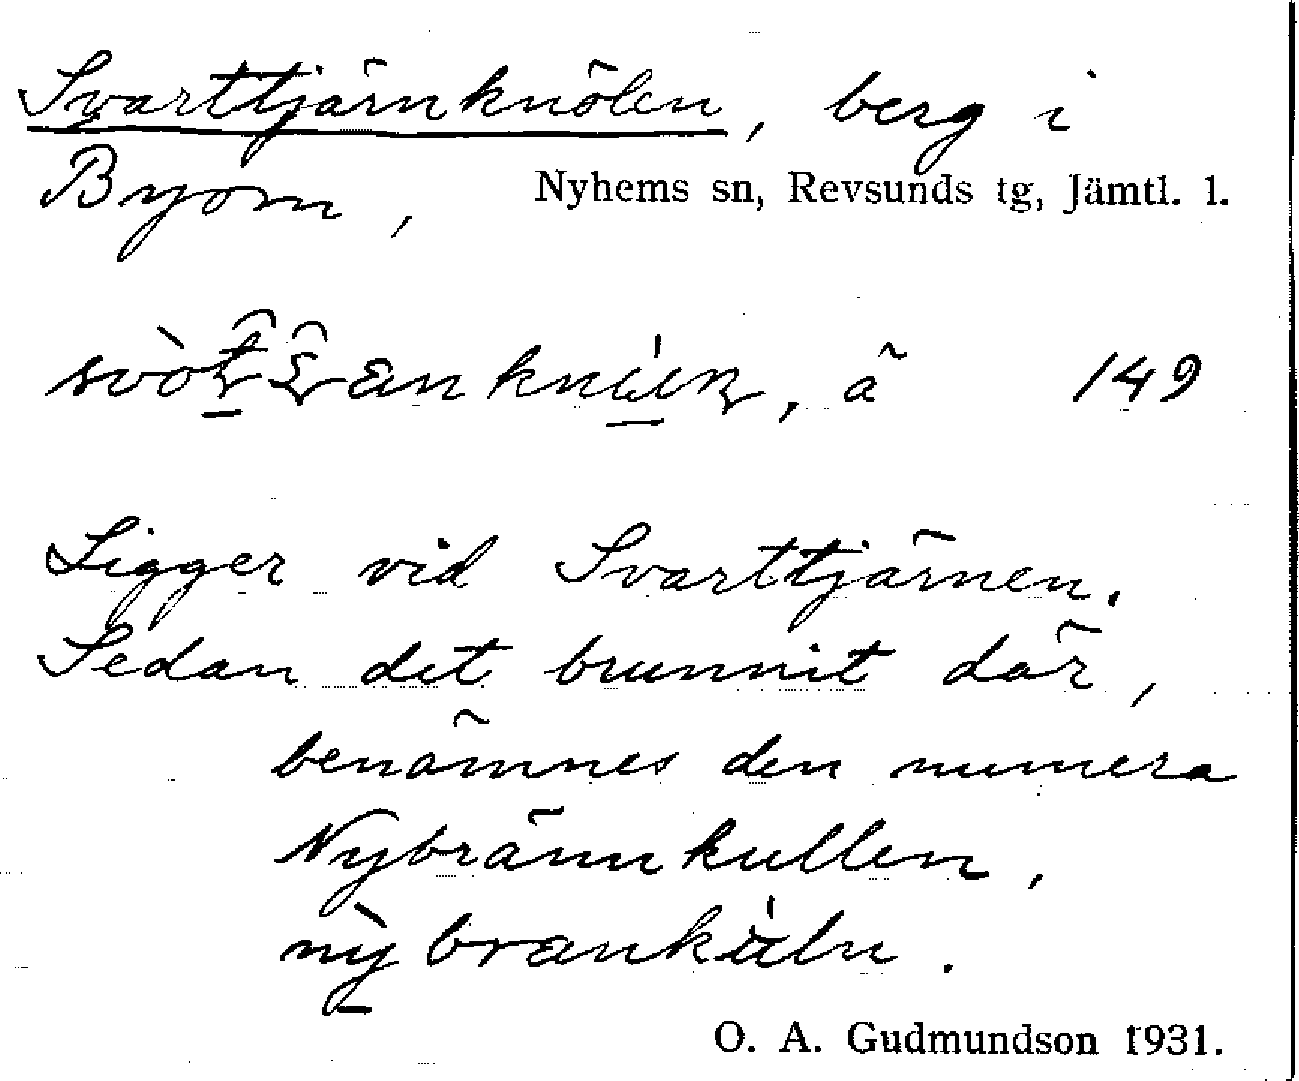 Svarttjärnknölen, berg i
Byom, Nyhems sn, Revsunds tg, Jämtl. l.
å 149
Ligger vid Svarttjärnen.
Sedan det brunnit där,
benämnes den numera
Nybrännkullen,
O. A. Gudmundson 1931.